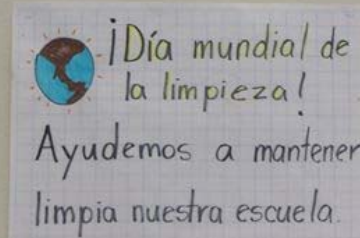 ¡Día mundial de
la limpieza!
Ayudemos a mantener
limpia nuestra escuela.